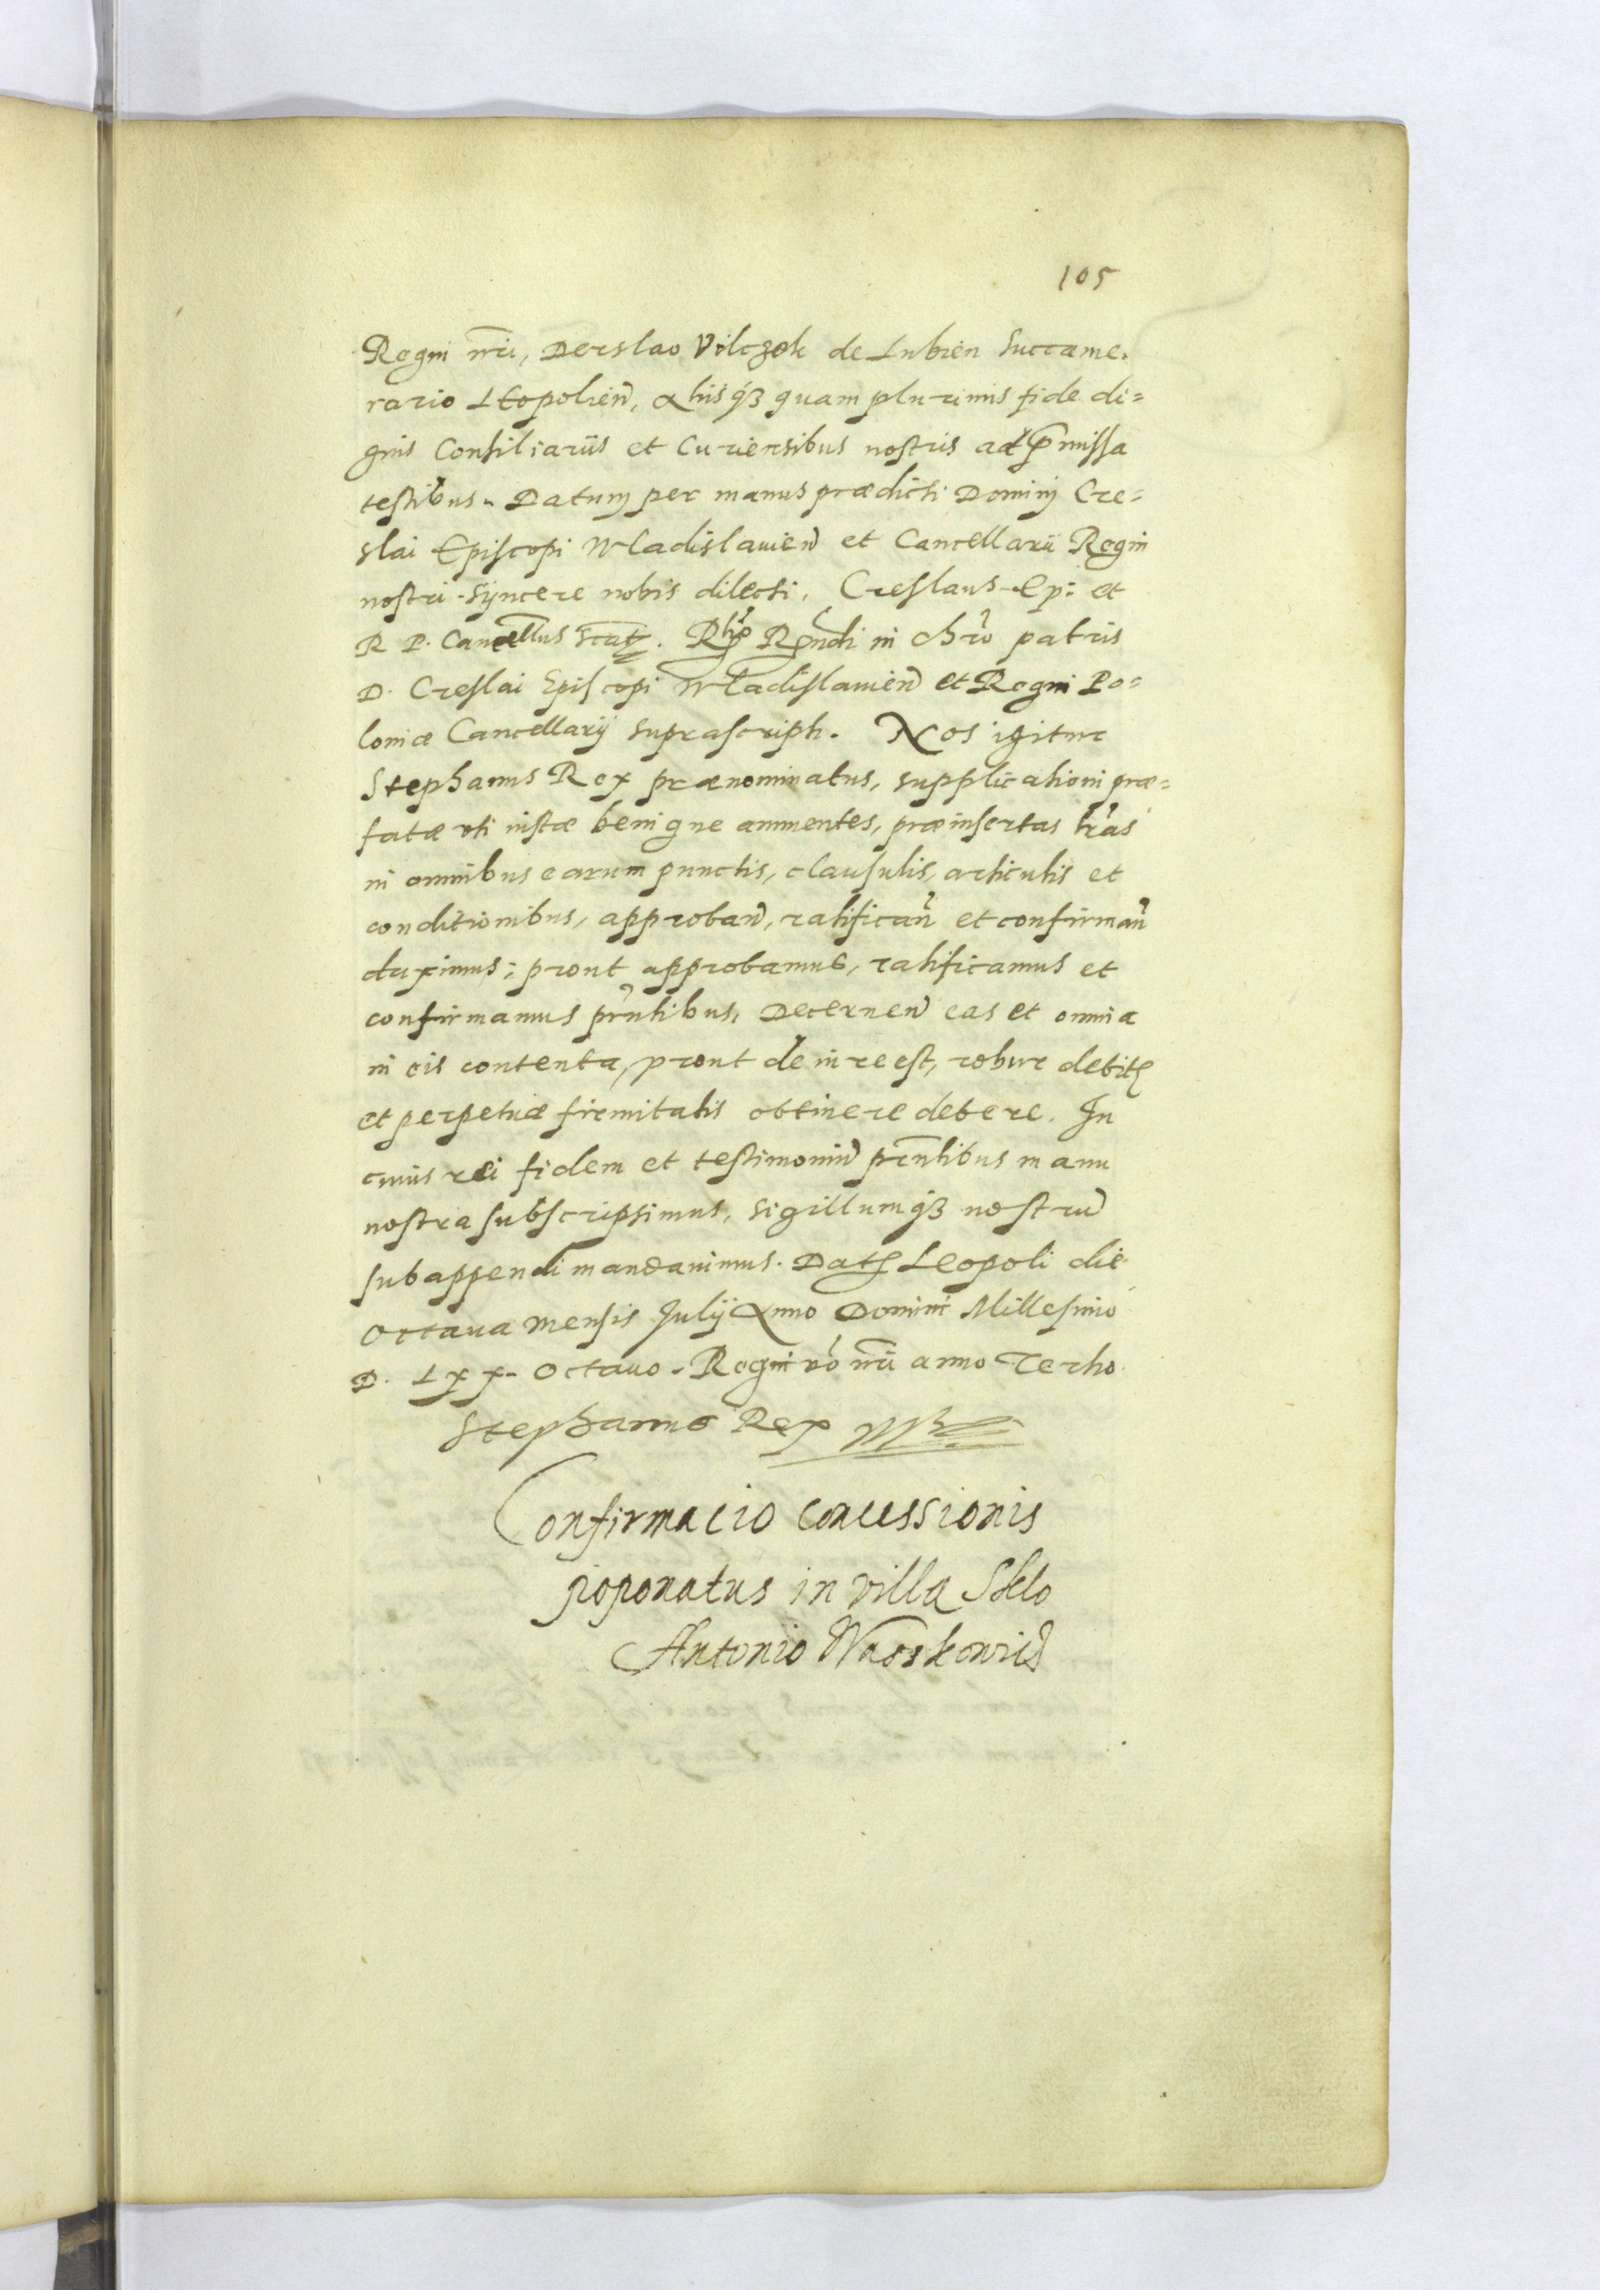 105
Regni nri, Derslao Vilczek de Lubien Succame-
rario Leopolien, Alhisq3 quam plurimis fide di=
gnis Consiliariis et Curiensibus nostris ad pmissa
testibus. Datum per manus prædicti Dominj Cre=
slai Episcopi Wladislauien et Cancellarii Regni
nostri Syncere nobis dilecti. Creslaus Ep: et
R P. Cancellus scat. Rlo Rndi in Chro patris
D. Creslai Episcopi Wladislauien et Regni Po=
loniæ Cancellarij suprascripti. Nos igitur
Stephanus Rex prænominatus, supplicationi præ=
fatæ uti iustæ benigne annuentes, præinsertas lras
in omnibus earum punctis, clausulis, articulis et
conditionibus, approban, ratifican et confirman
duximus; prout approbamus, ratificamus et
confirmamus pntibus, Decernen eas et omnia
in eis contenta, prout de iure est, robur debit
et perpetuæ firmitatis obtinere debere. In
cuius rei fidem et testimoniu pntibus manu
nostra subscripsimus, sigillumq3 nostru
subappendi mandauimus. Dat Leopoli die
Octaua mensis Julij Anno Domini Millesimo
D. Lxx. Octauo. Regni vo nri anno Tertio.
Stephanus Rex
Confirmacio concessionis
poponatus in villa Sklo
Antonio Waoskowicz